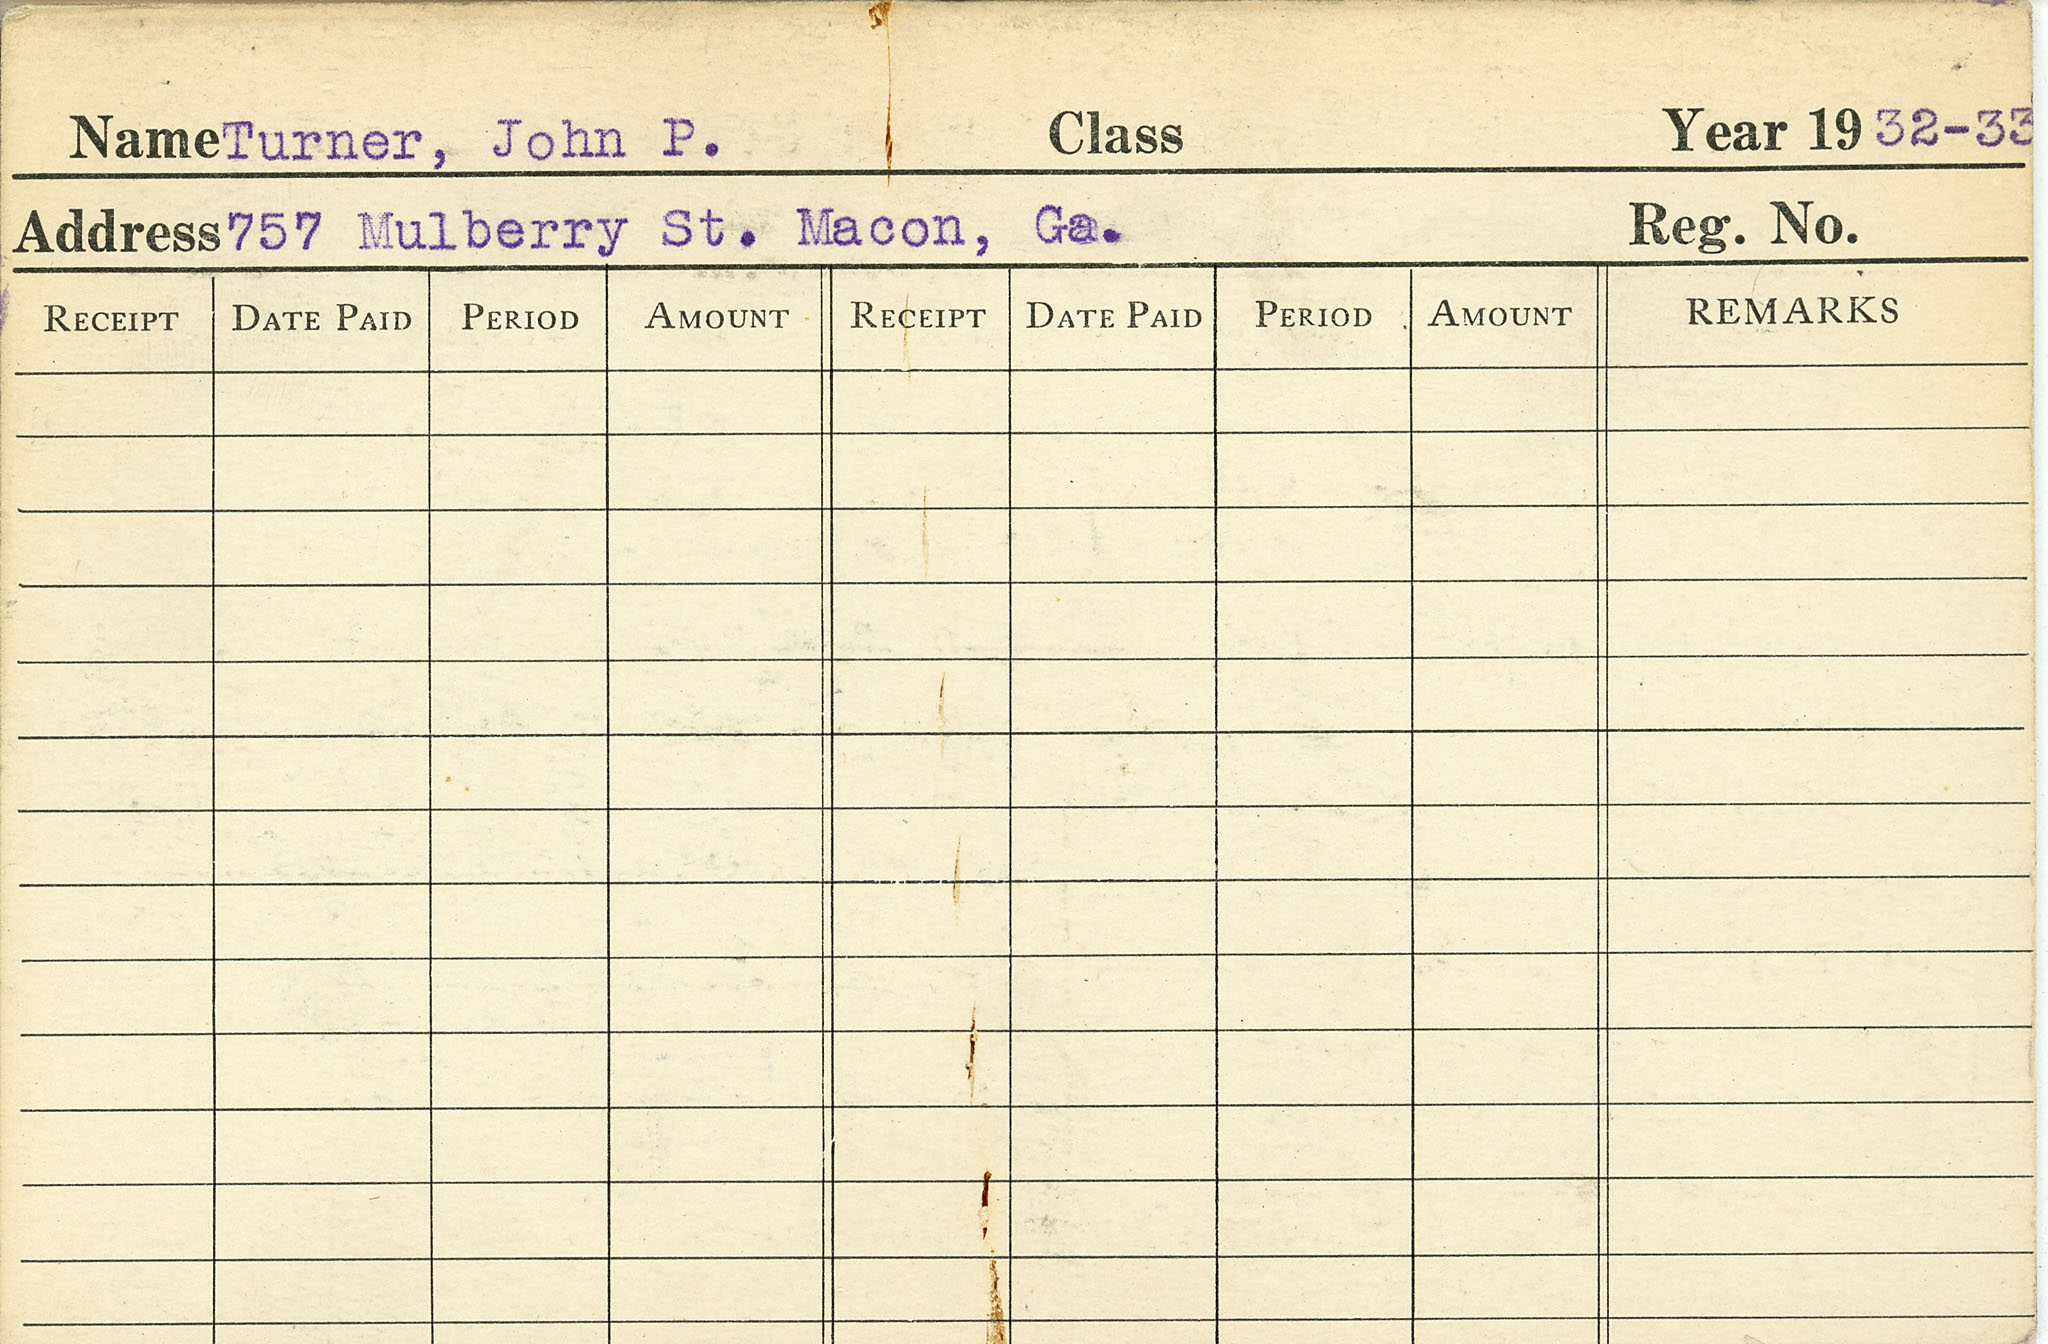 Name Turner, John P. Class Year 19 32-33
Address 757 Mulberry St. Macon, Ga. Reg. No.
RECEIPT DATE PAID PERIOD AMOUNT RECEIPT DATE PAID PERIOD AMOUNT REMARKS